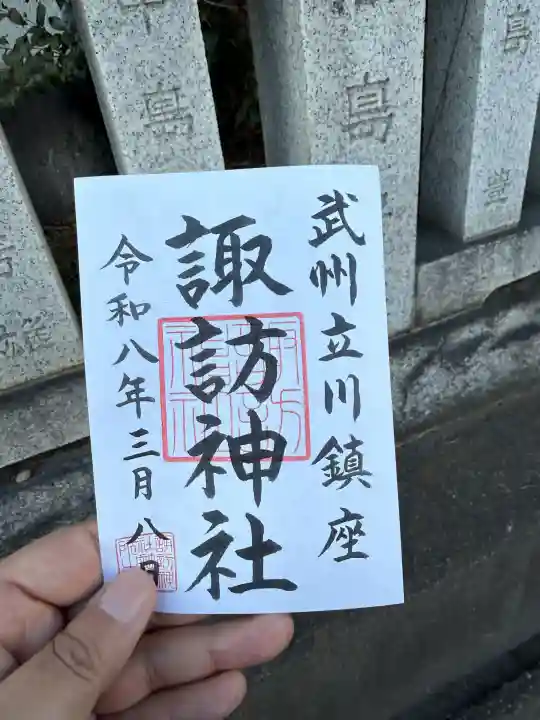 武州立川鎮座
諏訪神社
令和八年三月八日
島
島
島
豊